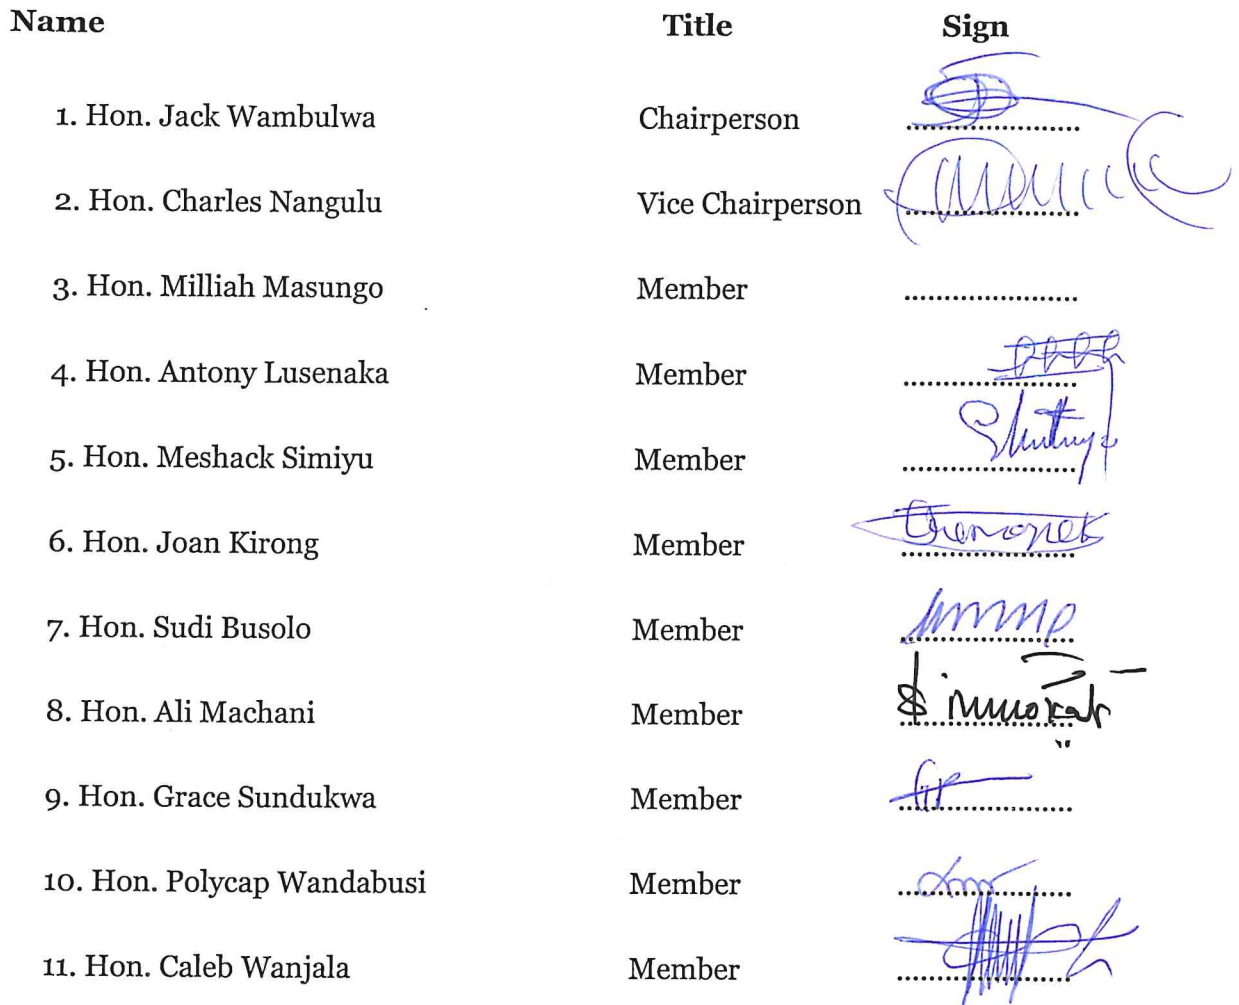 Name Title Sign
1. Hon. Jack Wambulwa Chairperson ......................
2. Hon. Charles Nangulu Vice Chairperson ......................
3. Hon. Milliah Masungo Member ......................
4. Hon. Antony Lusenaka Member ......................
5. Hon. Meshack Simiyu Member ......................
6. Hon. Joan Kirong Member ......................
7. Hon. Sudi Busolo Member ......................
8. Hon. Ali Machani Member ......................
9. Hon. Grace Sundukwa Member ......................
10. Hon. Polycap Wandabusi Member ......................
11. Hon. Caleb Wanjala Member ......................